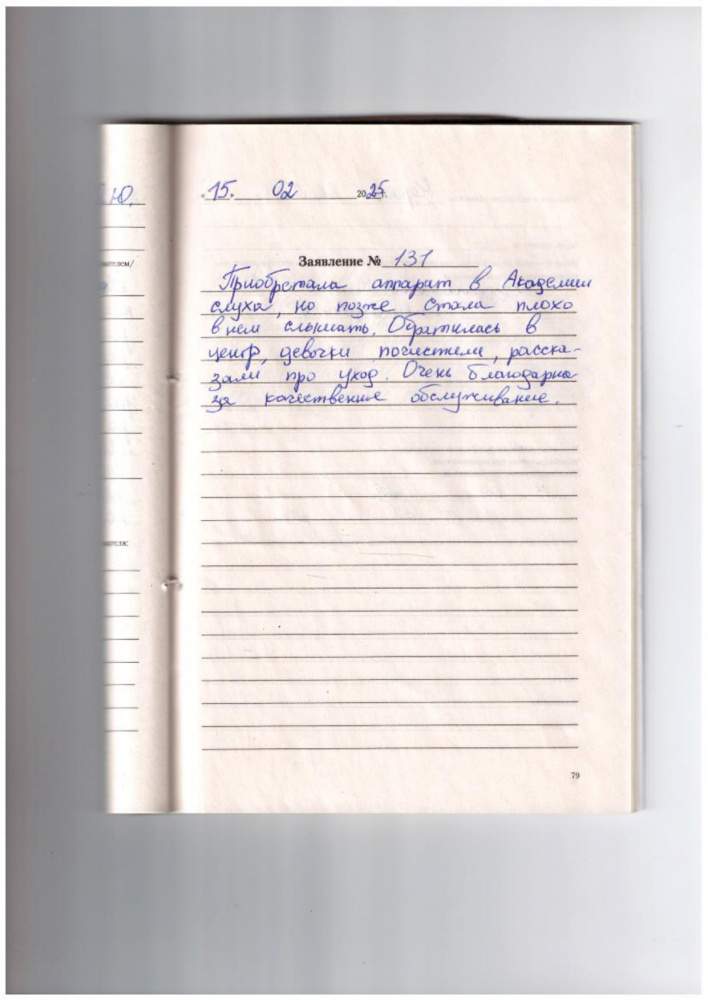 Ю.
«15» 02 2025г.
Заявление № 131
Приобретала аппарат в Академии
слуха, но позже стала плохо
в нем слышать. Обратилась в
центр, девочки почистили, расска-
зали про уход. Очень благодарна
за качественное обслуживание.
79